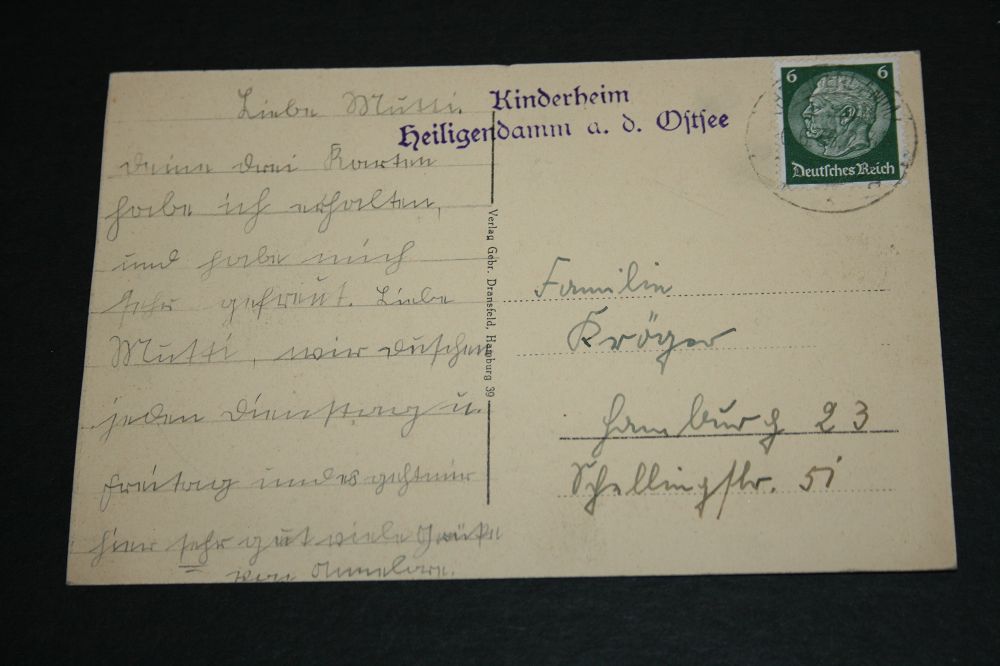 Liebe Mutti.
Deine drei Karten
habe ich erhalten,
und habe mich
sehr gefreut. Liebe
Mutti, wir duschen
jeden Dienstag u.
Freitag und es geht mir
hier sehr gut viele Grüße
von Annelore.
Kinderheim
Heiligendamm a. d. Ostsee
Verlag Gebr. Dransfeld, Hamburg 39
6 6
Deutsches Reich
Familie
Kröger
Hamburg 23
Schellingstr. 51